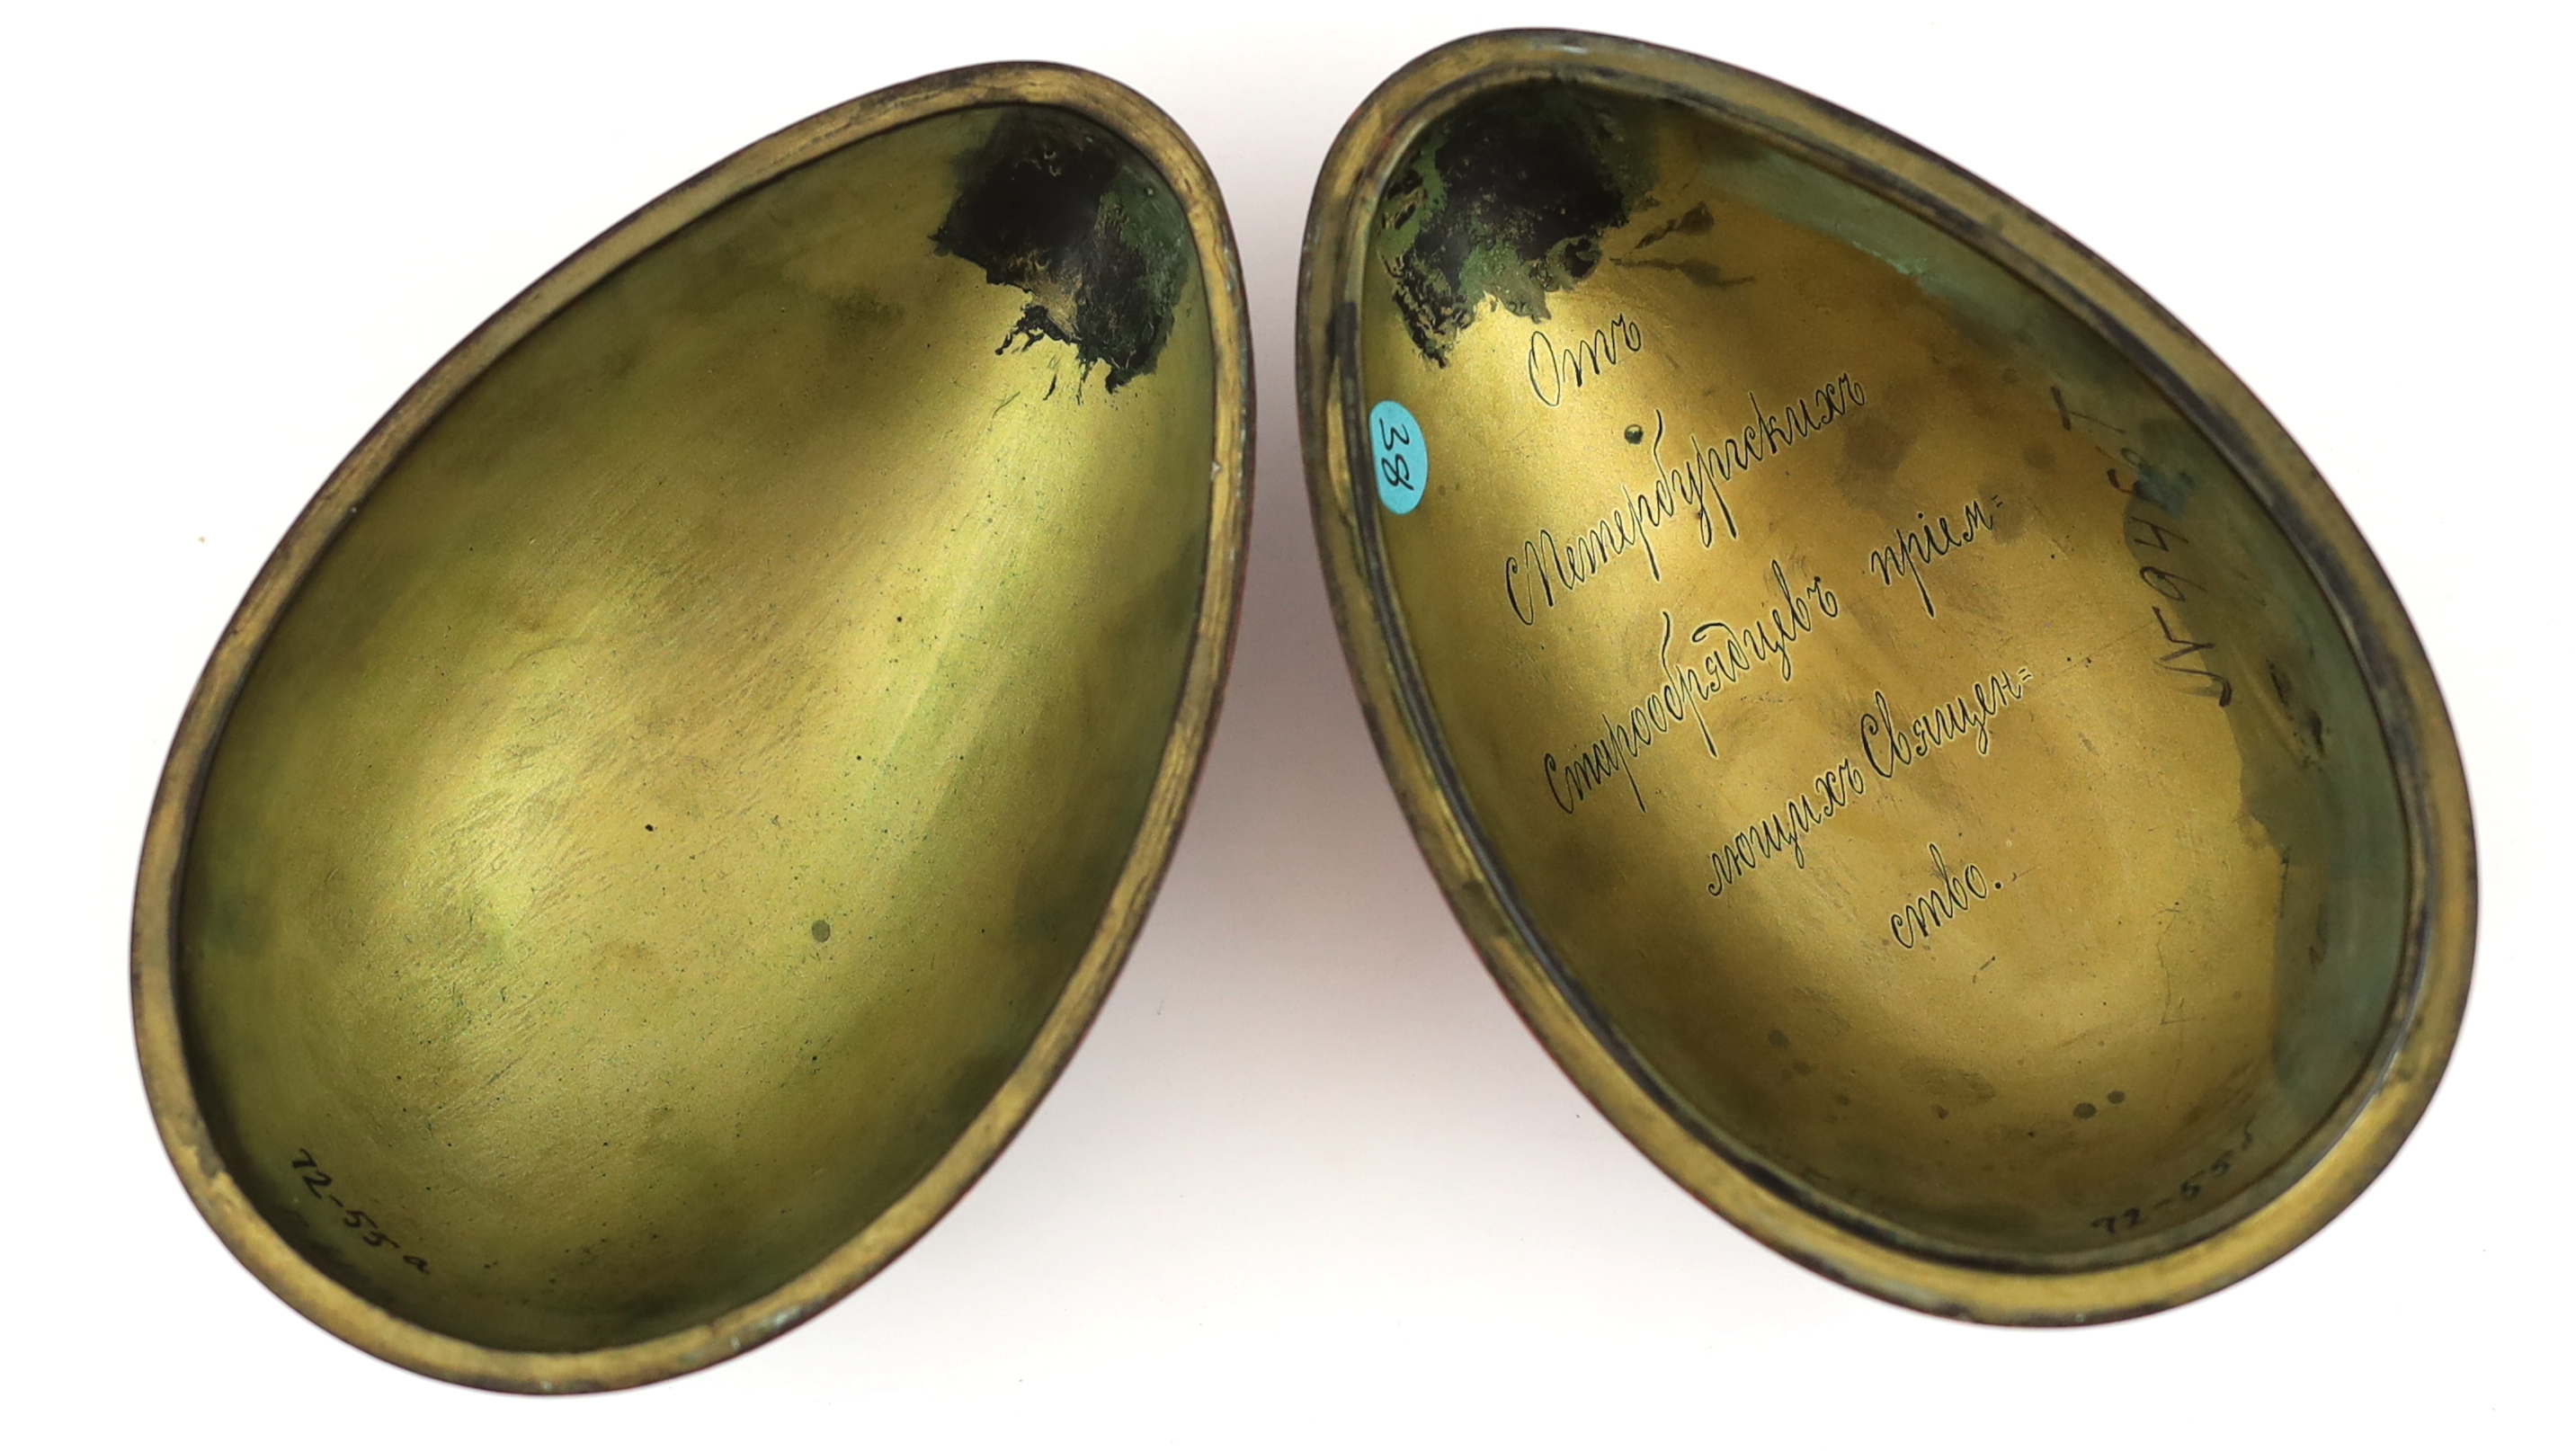 Отъ
С Петербургскихъ
Старообрядцевъ прiем=
лющихъ Священ=
ство.
38
72-55a